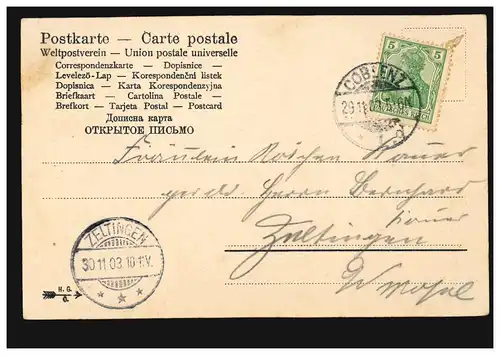 Postkarte — Carte postale
Weltpostverein — Union postale universelle
Correspondenzkarte — Dopisnice —
Levelező-Lap — Korespondenční listek
Dopisnica — Karta Korespondencyjna
Briefkaart — Cartolina Postale —
Brefkort — Tarjeta Postal — Postcard
Дописна карта
ОТКРЫТОЕ ПИСЬМО
5 5
COBLENZ
29.11.
Fräulein Röschen Kauer
Herrn Bernhard
Kauer
Zeltingen
Mosel
ZELTINGEN
30 11 03 10-11.V.
* * *
H. G.